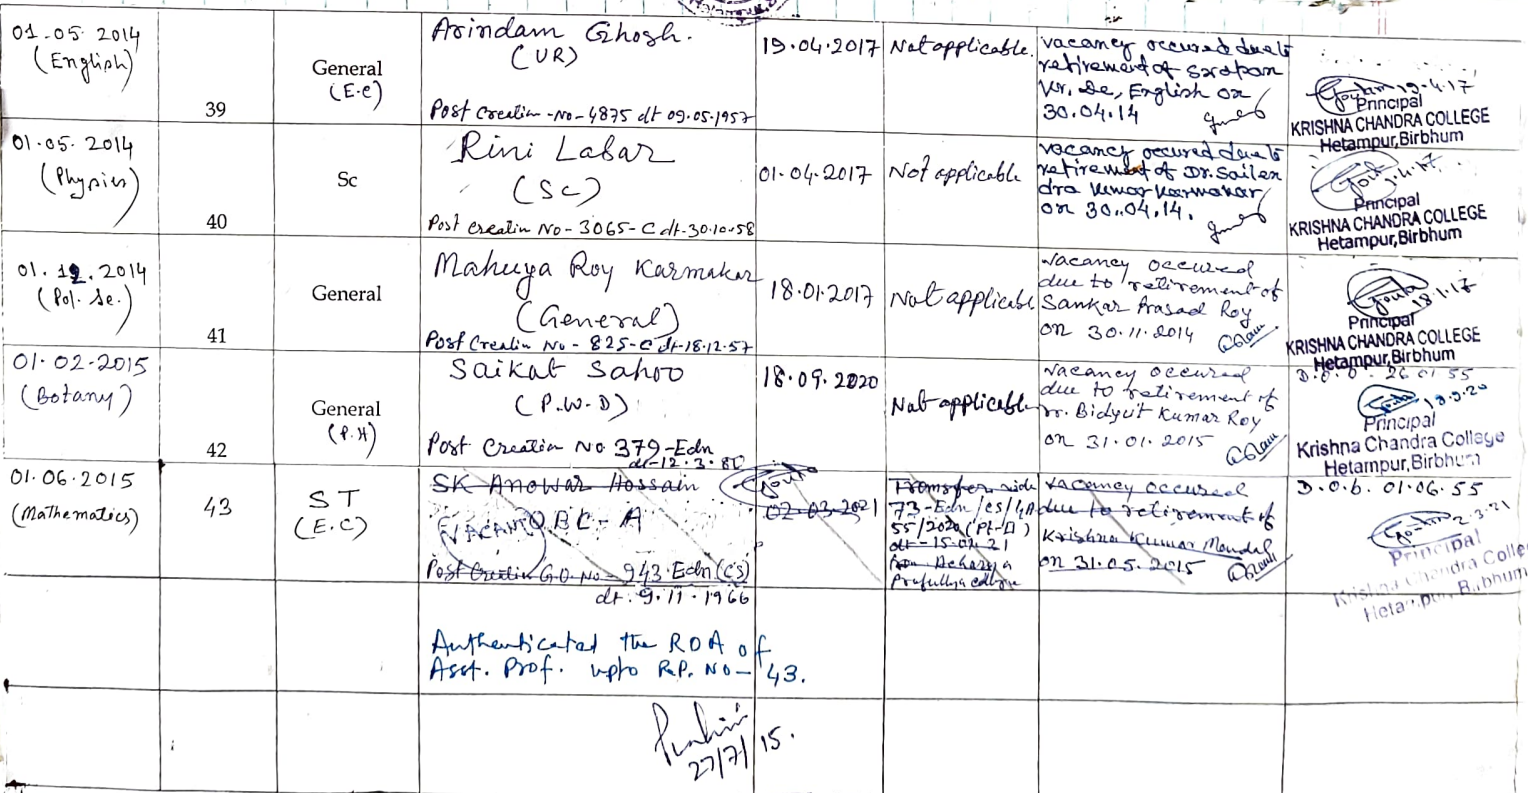 01.05.2014
(English)
39
General
(E.C)
Arindam Ghosh.
(UR)
Post Creation -No- 4875 dt 09.05.1957
19.04.2017
Not applicable.
vacancy occured due to
retirement of Swapan
Kr. De, English on
30.04.14
19.4.17
Principal
KRISHNA CHANDRA COLLEGE
Hetampur, Birbhum
01.05.2014
(Physics)
40
Sc
Rini Labar
(SC)
Post creation No- 3065-C dt-30.10.58
01.04.2017
Not applicable
vacancy occured due to
retirement of Dr. Sailen
dra Kumar Karmakar
on 30..04.14.
1.4.17
Principal
KRISHNA CHANDRA COLLEGE
Hetampur, Birbhum
01.12.2014
(Pol. Sc.)
41
General
Mahuya Roy Karmakar
(General)
Post Creation No - 825-C dt-18.12.57
18.01.2017
Not applicable
vacancy occured
due to retirement of
Sankar Prasad Roy
on 30.11.2014
18.1.17
Principal
KRISHNA CHANDRA COLLEGE
Hetampur, Birbhum
01.02-2015
(Botany)
42
General
(P.H)
Saikat Sahoo
(P.W.D)
Post Creation No 379-Edn
dt-12.3.80
18.09.2020
Not applicable
vacancy occured
due to retirement of
Dr. Bidyut Kumar Roy
on 31.01.2015
D.O.B. 26 01 55
18.9.20
Principal
Krishna Chandra College
Hetampur, Birbhum
01.06.2015
(Mathematics)
43
ST
(E.C)
SK Anowar Hossain
VACANT OBC-A
Post Creation G.O. No- 943-Edn(CS)
dt. 9.11.1966
02-03-2021
Transfer vide
73-Edn/CS/4A
55/2020 (Pt-II)
dt-15.02.21
from Acharya
Prafullya college
vacancy occured
due to retirement of
Krishna Kumar Mondal
on 31.05.2015
D.O.b. 01.06.55
2.3.21
Principal
Krishna Chandra College
Hetampur, Birbhum
Authenticated the ROA of
Asst. Prof. upto R.P. No- 43.
27/7/15.